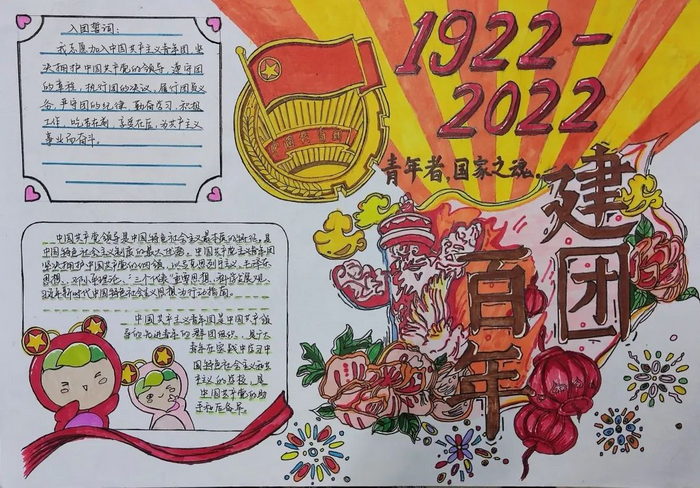 入团誓词:
我志愿加入中国共产主义青年团,坚
决拥护中国共产党的领导,遵守团
的章程,执行团的决议,履行团员义
务,严守团的纪律,勤奋学习,积极
工作,吃苦在前,享受在后,为共产主
义事业而奋斗。
1922-
2022
青年者,国家之魂.
建团
百年
中国共产党领导是中国特色社会主义最本质的特征,是
中国特色社会主义制度的最大优势。中国共产主义青年团
坚决拥护中国共产党的纲领,以马克思列宁主义、毛泽东
思想、邓小平理论、“三个代表”重要思想、科学发展观、
习近平新时代中国特色社会主义思想为行动指南。
中国共产主义青年团是中国共产党领
导的先进青年的群团组织,是广大
青年在实践中学习中
国特色社会主义和共
产主义的学校,是
中国共产党的助
手和后备军。